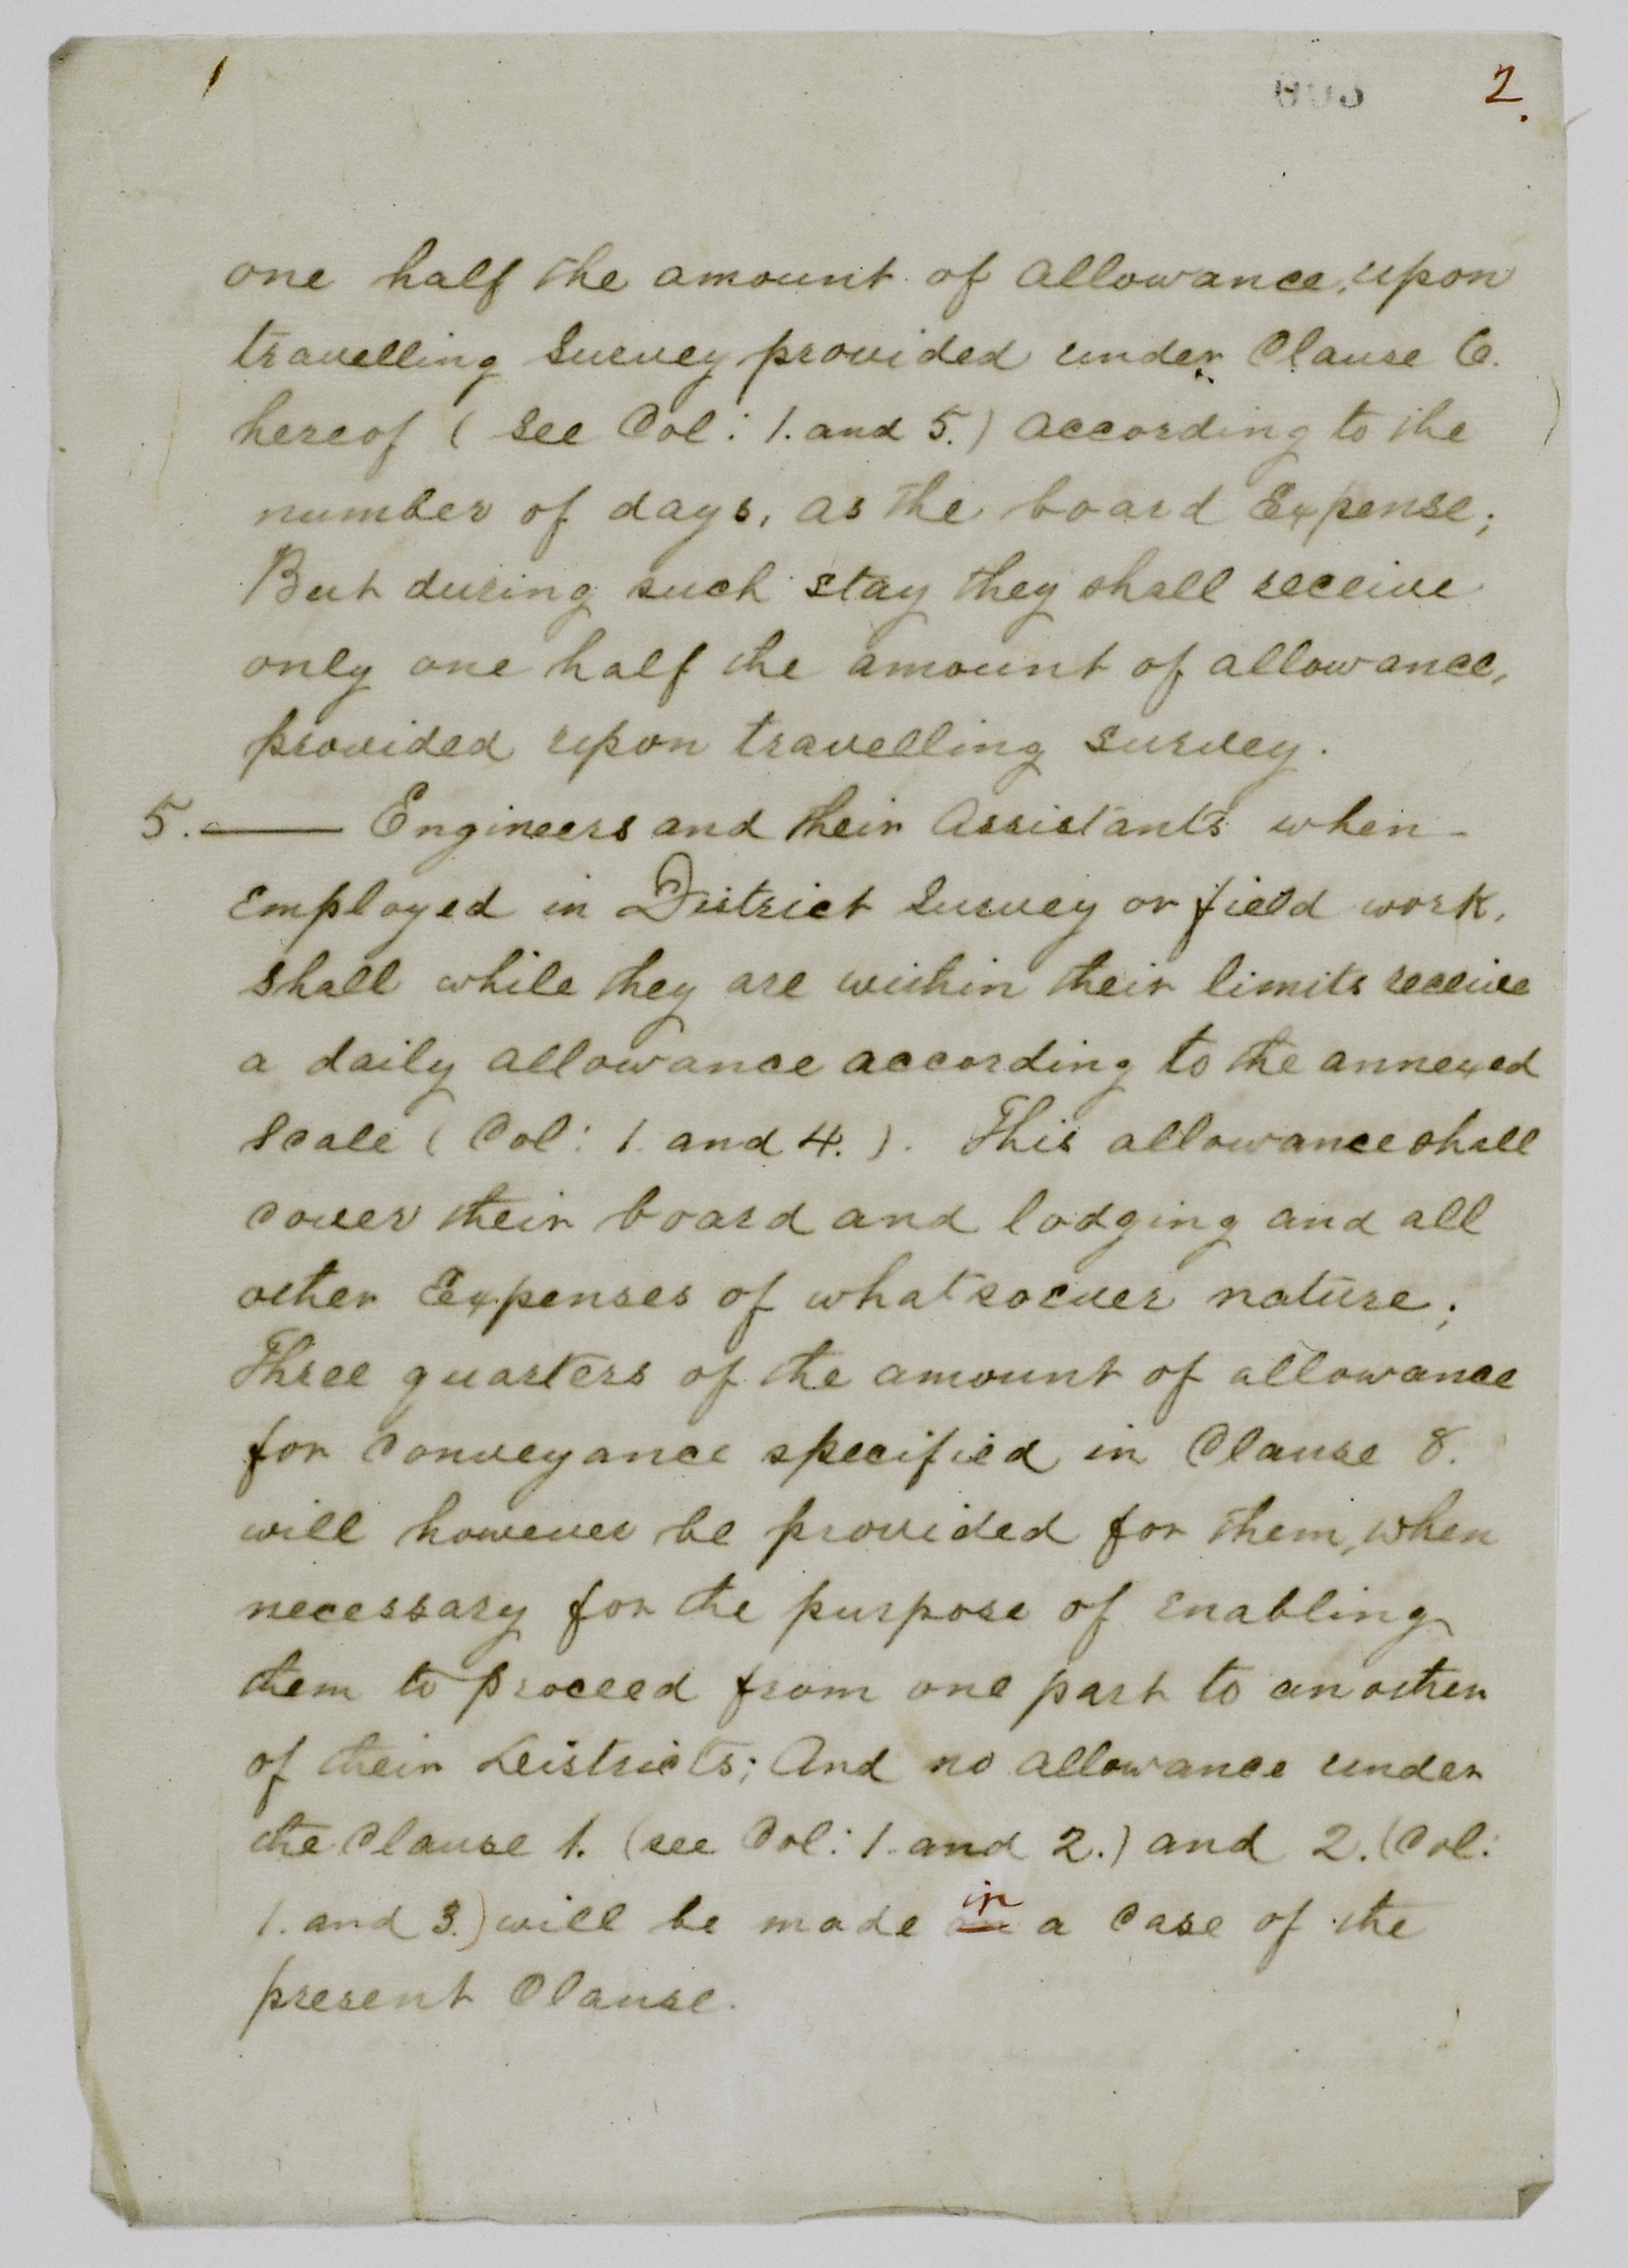 2.
one half the amount of allowance, upon
travelling Survey provided under Clause 6.
hereof ( See Col: 1. and 5.) according to the
number of days, as the board Expense;
But during such stay they shall receive
only one half the amount of allowance,
provided upon travelling survey.
5. — Engineers and their Assistants when
employed in District Survey or field work,
shall while they are within their limits receive
a daily allowance according to the annexed
Scale ( Col: 1. and 4. ). This allowance shall
cover their board and lodging and all
other Expenses of whatsoever nature;
Three quarters of the amount of allowance
for conveyance specified in Clause 8.
will however be provided for them, when
necessary for the purpose of enabling
them to proceed from one part to another
of their Districts; And no allowance under
the Clause 1. (see Col: 1. and 2.) and 2. (Col:
in
1. and 3.) will be made a case of the
present Clause.